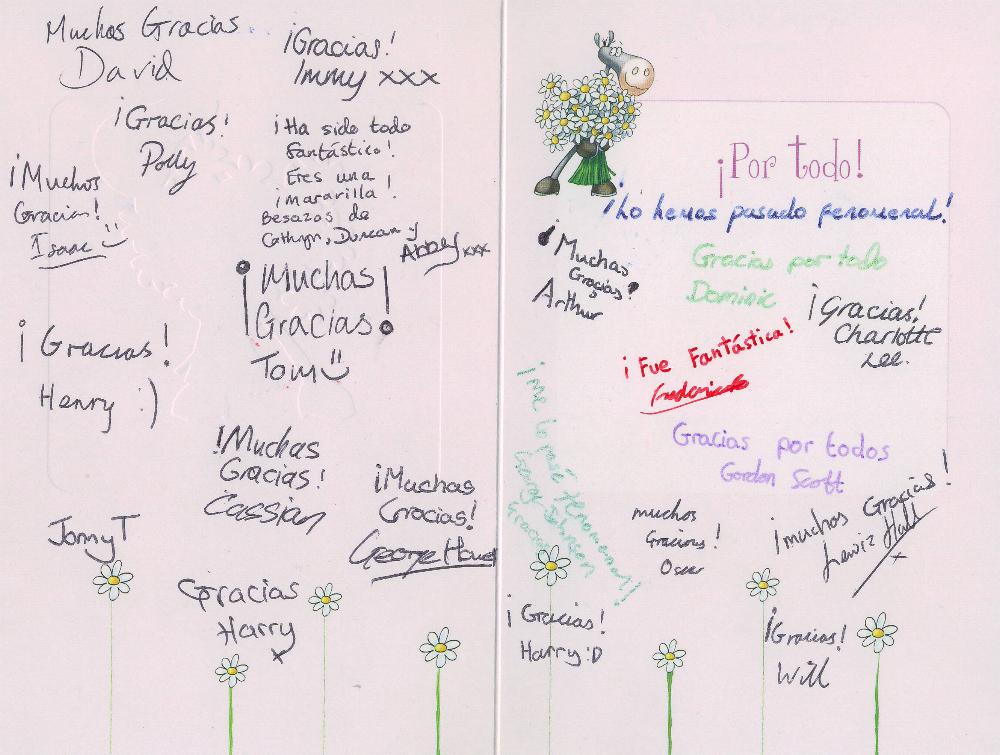 Muchos Gracias
David
¡Gracias!
Immy xxx
¡Gracias!
Polly
¡Ha sido todo
fantástico!
Eres una
¡maravilla!
Besazos de
Cathryn, Duncan y
Abbey xxx
¡Muchos
Gracias!
Isaac
¡Muchas
Gracias!
Tom
¡Gracias!
Henry :)
!Muchas
Gracias!
Cassian
¡Muchas
Gracias!
George
Jonny T
Gracias
Harry
x
¡Por todo!
¡Lo hemos pasado fenomenal!
¡Muchas
Gracias!
Arthur
Gracias por todo
Dominic
¡Gracias!
Charlotte
Lee.
¡Fue Fantástica!
¡Me lo pasé
George Johnson
Gracias
Gracias por todos
Gordon Scott
muchos
Gracias!
Oscar
¡muchos Gracias!
Lewis Hall
x
¡Gracias!
Harry :D
¡Gracias!
Will